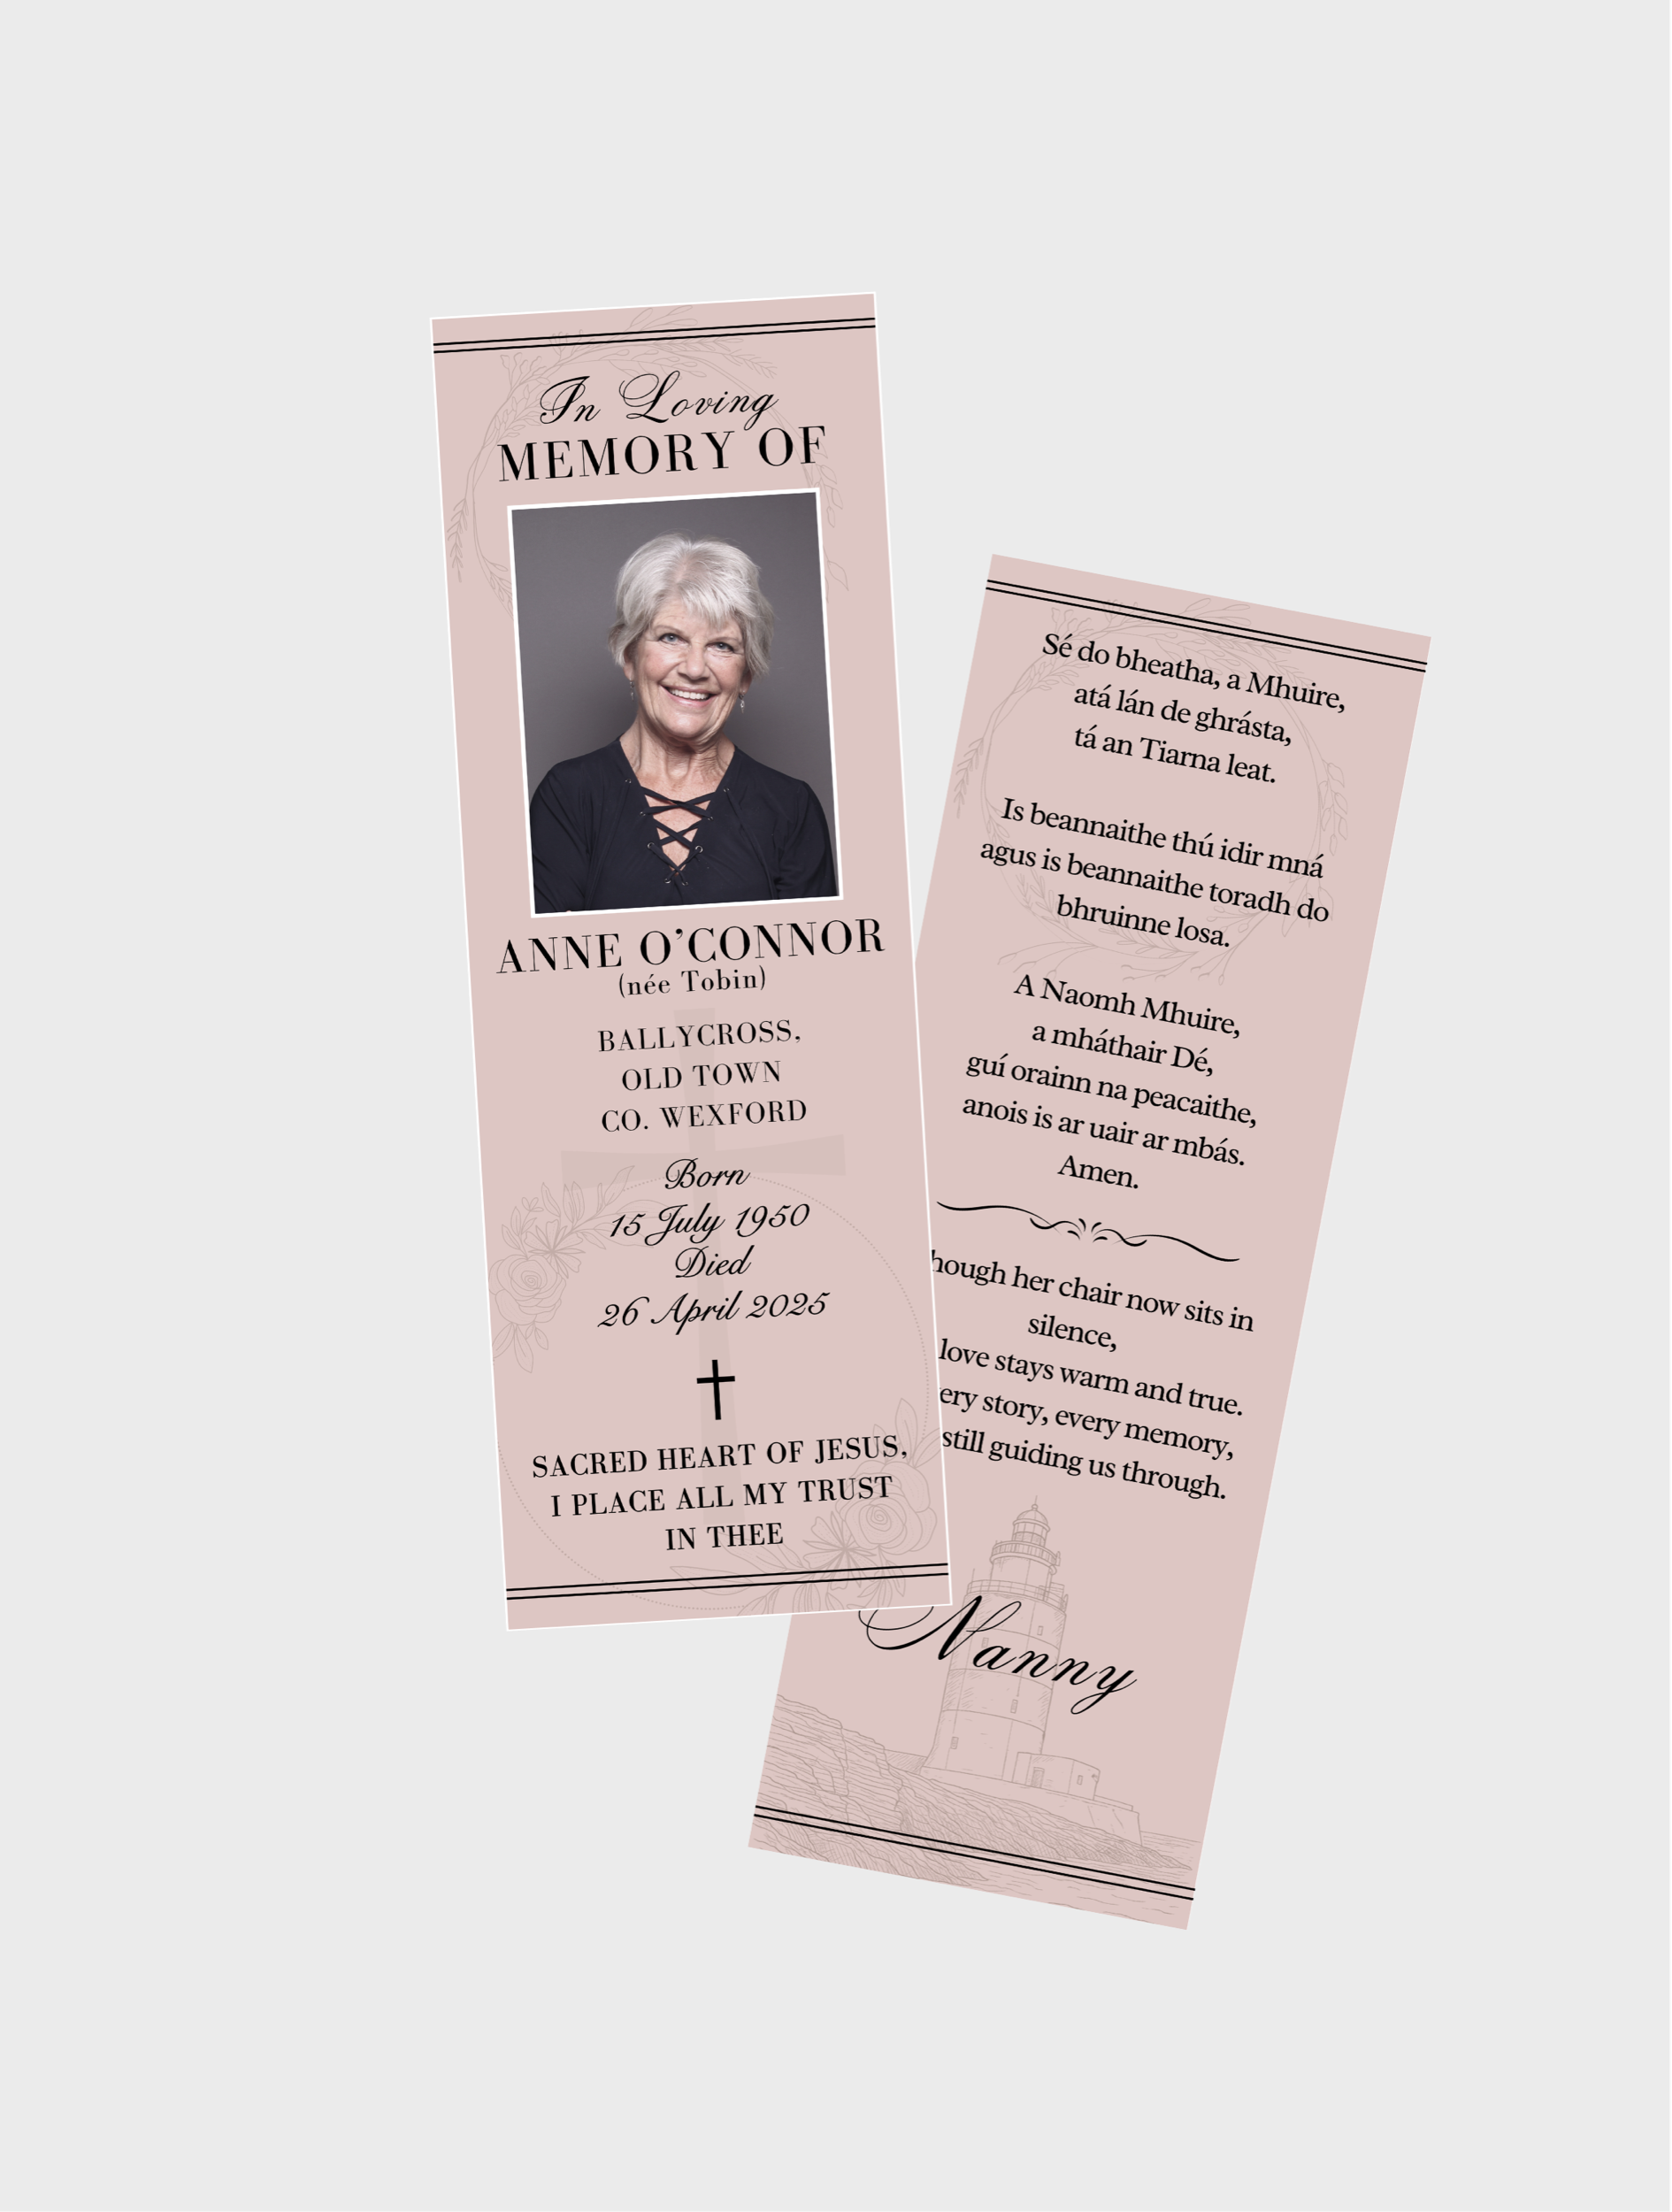 In Loving
MEMORY OF
ANNE O’CONNOR
(née Tobin)
BALLYCROSS,
OLD TOWN
CO. WEXFORD
Born
15 July 1950
Died
26 April 2025
SACRED HEART OF JESUS,
I PLACE ALL MY TRUST
IN THEE
Sé do bheatha, a Mhuire,
atá lán de ghrásta,
tá an Tiarna leat.
Is beannaithe thú idir mná
agus is beannaithe toradh do
bhruinne Iosa.
A Naomh Mhuire,
a mháthair Dé,
guí orainn na peacaithe,
anois is ar uair ar mbás.
Amen.
her chair now sits in
silence,
love stays warm and true.
story, every memory,
still guiding us through.
Nanny